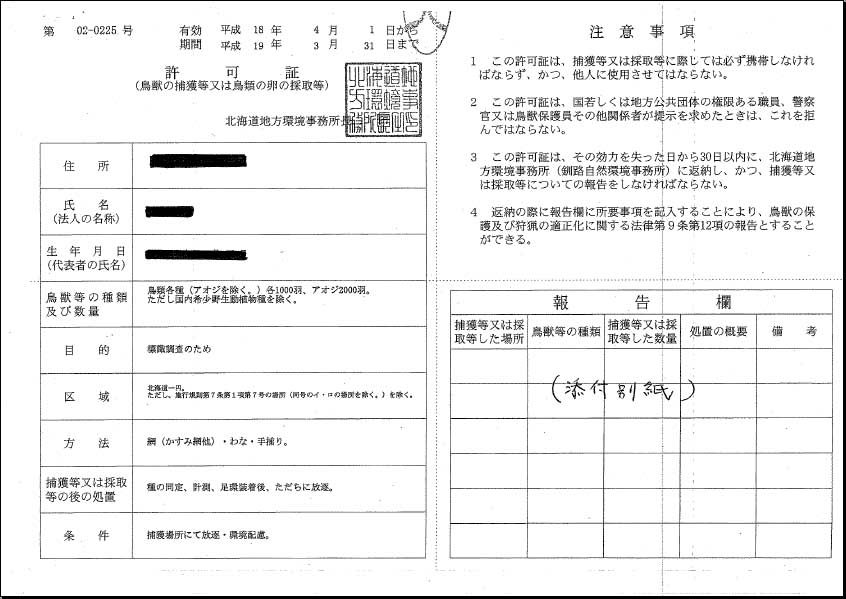 第 02-0225 号
有効 平成 18 年 4 月 1 日から
期間 平成 19 年 3 月 31 日まで
許可証
(鳥獣の捕獲等又は鳥類の卵の採取等)
北海道地方環境事務所長
住所
氏名
(法人の名称)
生年月日
(代表者の氏名)
鳥獣等の種類
及び数量
鳥類各種(アオジを除く。)各1000羽、アオジ2000羽。
ただし国内希少野生動植物種を除く。
目的
標識調査のため
区域
北海道一円。
ただし、施行規則第7条第1項第7号の場所(同号のイ・ロの場所を除く。)を除く。
方法
網(かすみ網他)・わな・手捕り。
捕獲等又は採取
等の後の処置
種の同定、計測、足環装着後、ただちに放逐。
条件
捕獲場所にて放逐・環境配慮。
注意事項
1 この許可証は、捕獲等又は採取等に際しては必ず携帯しなけれ
ばならず、かつ、他人に使用させてはならない。
2 この許可証は、国若しくは地方公共団体の権限ある職員、警察
官又は鳥獣保護員その他関係者が提示を求めたときは、これを拒
んではならない。
3 この許可証は、その効力を失った日から30日以内に、北海道地
方環境事務所(釧路自然環境事務所)に返納し、かつ、捕獲等又
は採取等についての報告をしなければならない。
4 返納の際に報告欄に所要事項を記入することにより、鳥獣の保
護及び狩猟の適正化に関する法律第9条第12項の報告とすること
ができる。
報告欄
捕獲等又は採
取等した場所
鳥獣等の種類
捕獲等又は採
取等した数量
処置の概要
備考
(添付別紙)